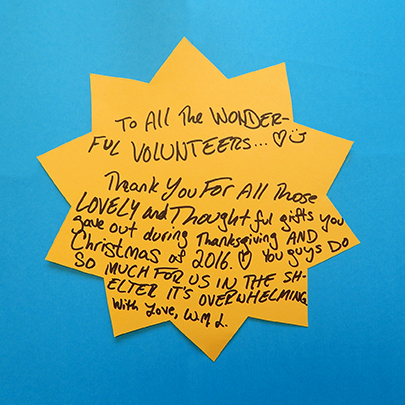 To All The WONDER-
FUL VOLUNTEERS...♡ツ
Thank You For All Those
LOVELY and Thoughtful gifts you
gave out during Thanksgiving AND
Christmas of 2016.♡ You guys Do
SO MUCH FOR US IN THE SH-
ELTER IT'S OVERWHELMING
With Love, W.M L.